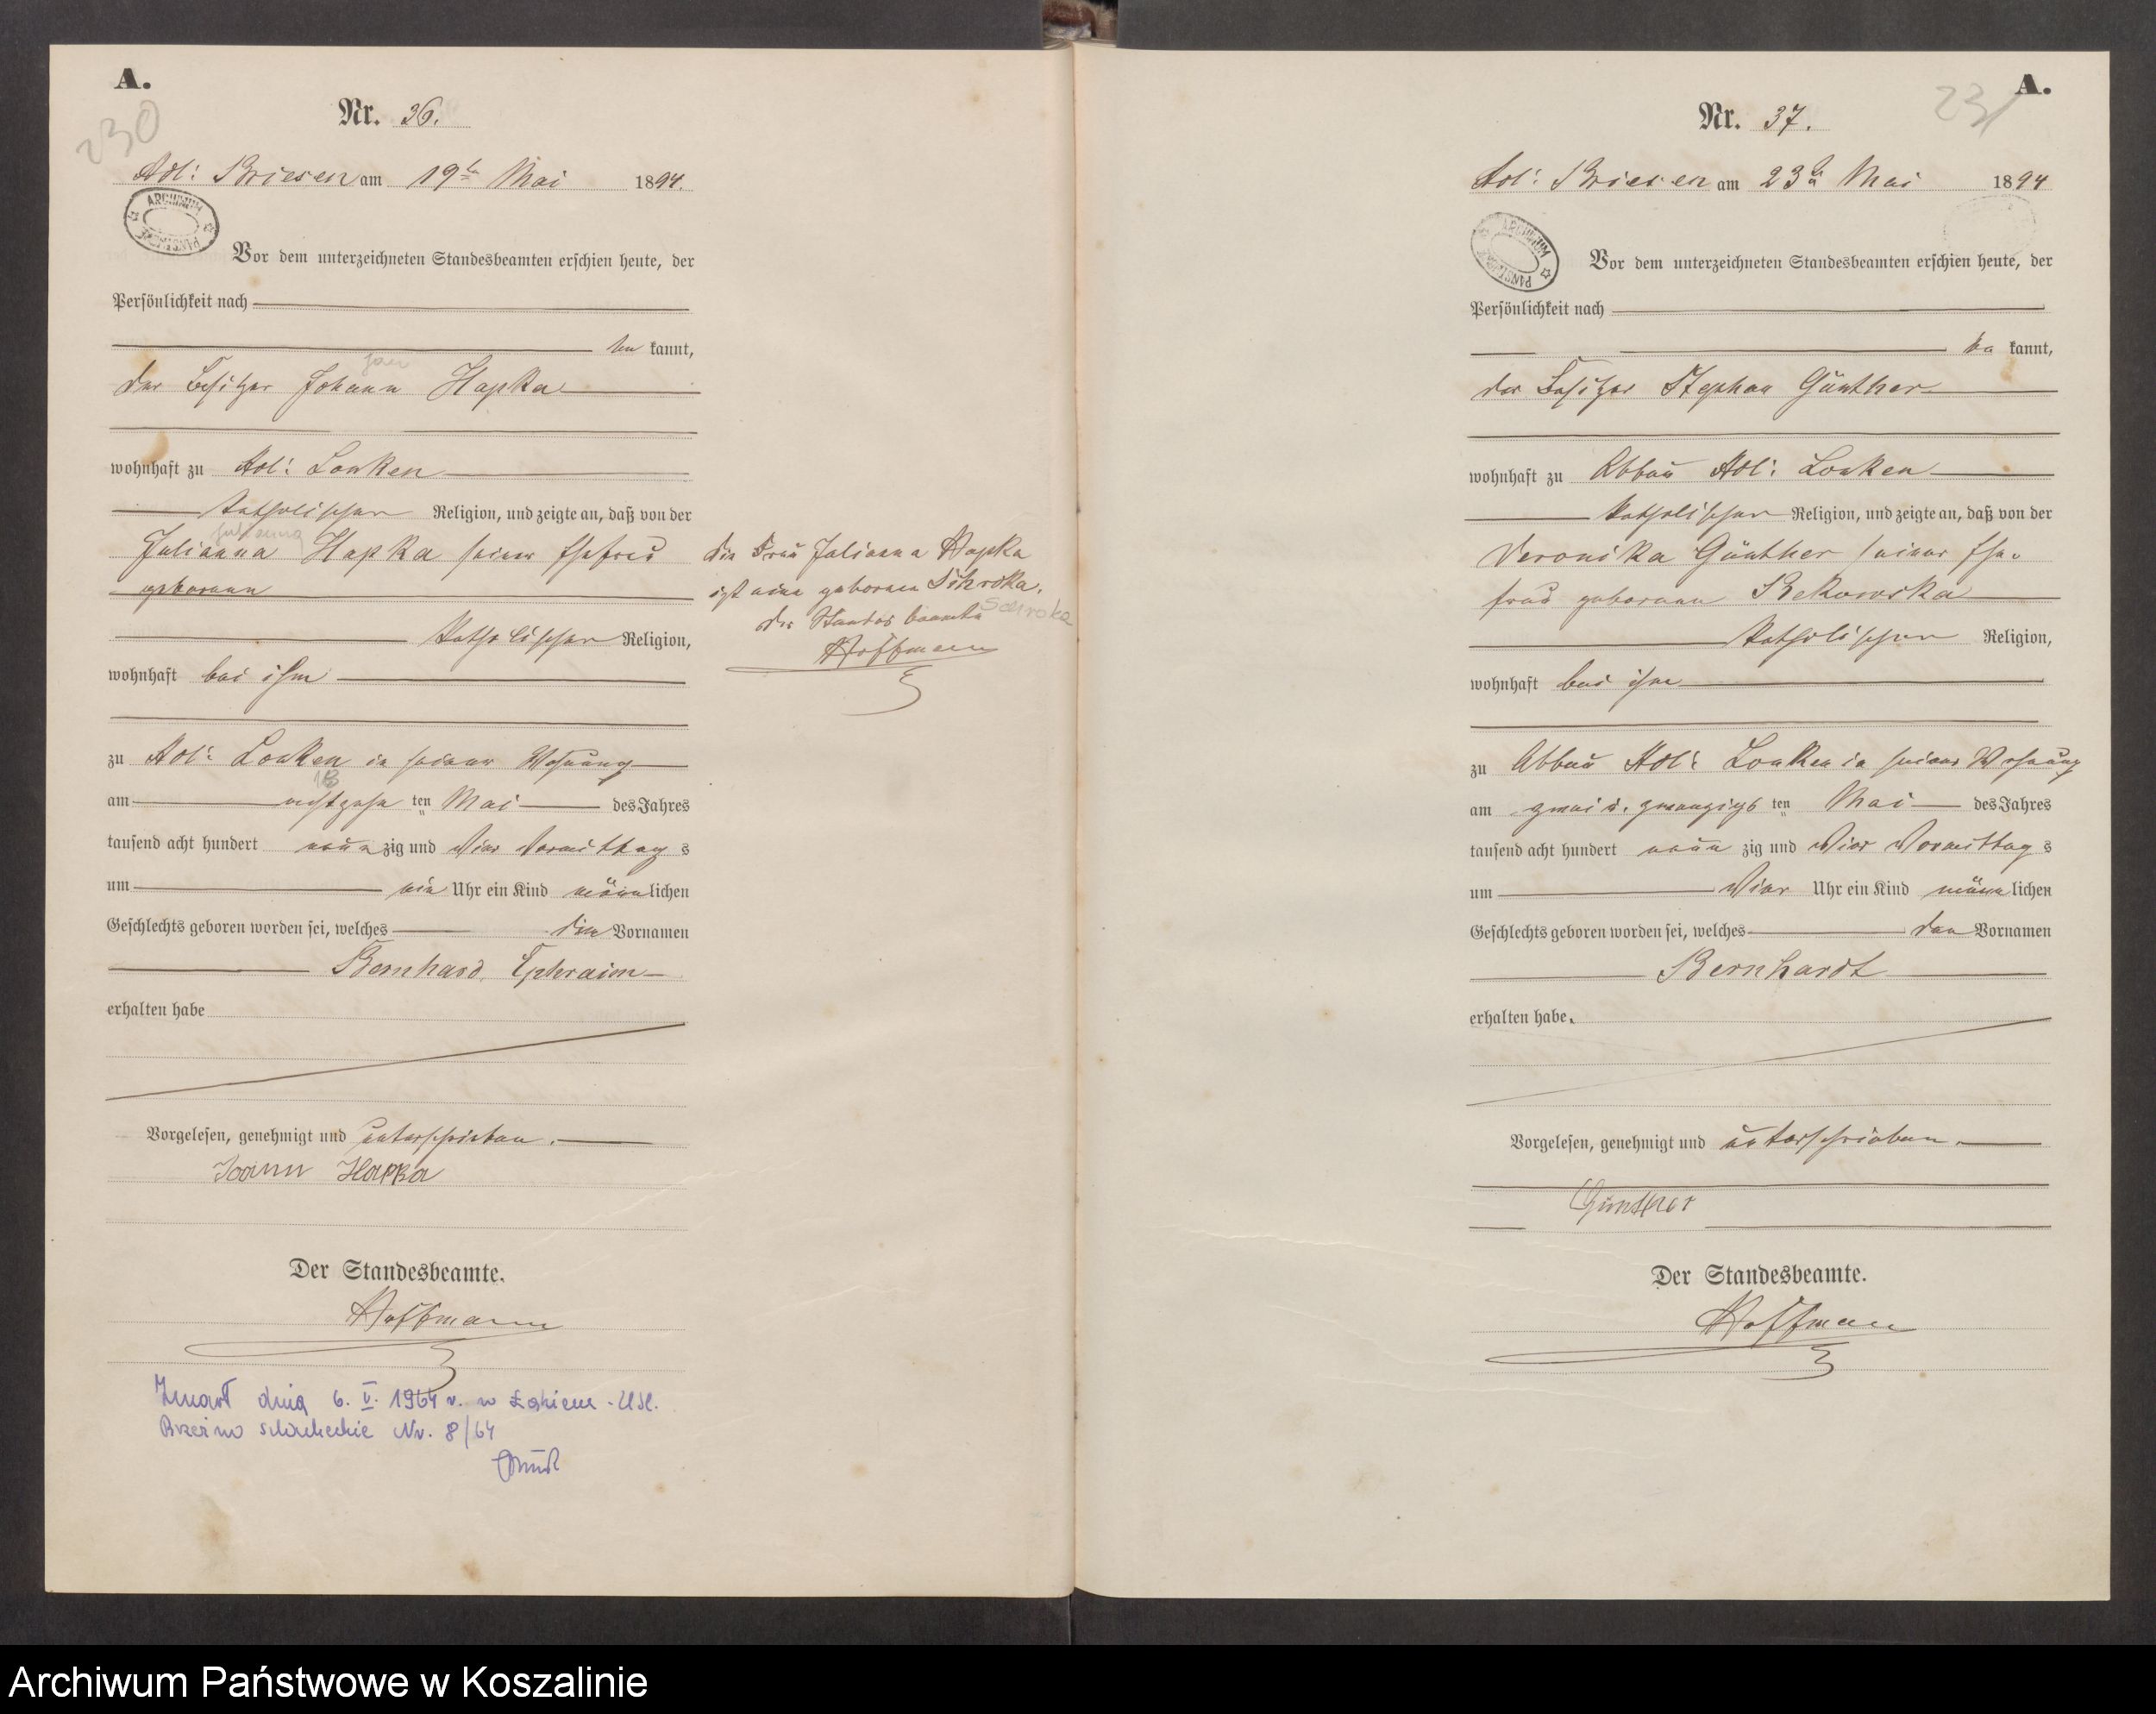 A.
230
Nr. 36.
Adl: Briesen am 19ten Mai 1894.
ARCHIWUM PAŃSTWOWE
Vor dem unterzeichneten Standesbeamten erschien heute, der
Persönlichkeit nach
be kannt,
Jan
der Besitzer Johann Hapka
wohnhaft zu Adl: Lonken
katholischer Religion, und zeigte an, daß von der
Julianna
Julianna Hapka seiner Ehefrau
geborenen
katholischer Religion,
wohnhaft bei ihm
zu Adl: Lonken in seiner Wohnung
18
am achtzehn ten Mai des Jahres
tausend acht hundert neun zig und vier Vormittag s
um ein Uhr ein Kind männ lichen
Geschlechts geboren worden sei, welches die Vornamen
Bernhard, Ephraim
erhalten habe
Vorgelesen, genehmigt und unterschrieben.
Joann Hapka
Der Standesbeamte.
Hoffmann
Zmarł dnia 6. V. 1964 r. w Łąkiem - USC.
Brzeźno Szlacheckie Nr. 8/64
die Frau Julianna Hapka
ist eine geborene Sikroka.
Scuroka
der Standesbeamte
Hoffmann
A.
231
Nr. 37.
Adl: Briesen am 23ten Mai 1894
ARCHIWUM PAŃSTWOWE
Vor dem unterzeichneten Standesbeamten erschien heute, der
Persönlichkeit nach
be kannt,
der Besitzer Stephan Günther
wohnhaft zu Abbau Adl: Lonken
katholischer Religion, und zeigte an, daß von der
Veronika Günther seiner Ehe-
frau geborenen Rekowska
katholischer Religion,
wohnhaft bei ihm
zu Abbau Adl: Lonken in seiner Wohnung
am zwei u. zwanzigs ten Mai des Jahres
tausend acht hundert neun zig und vier Vormittag s
um vier Uhr ein Kind männ lichen
Geschlechts geboren worden sei, welches den Vornamen
Bernhardt
erhalten habe.
Vorgelesen, genehmigt und unterschrieben.
Günther
Der Standesbeamte.
Hoffmann
Archiwum Państwowe w Koszalinie